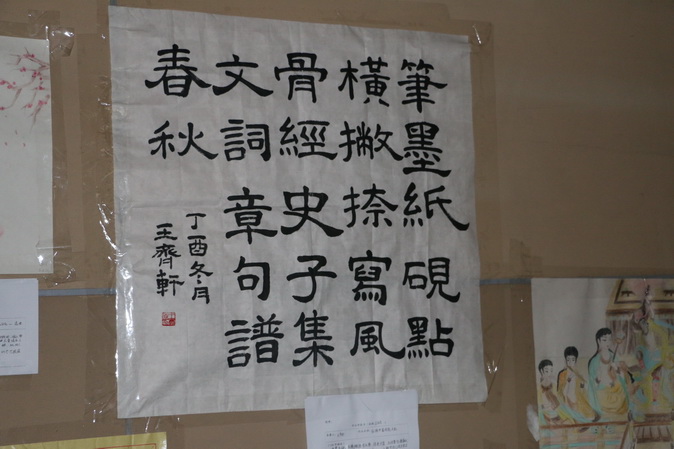 筆墨紙硯點
橫撇捺寫風
骨經史子集
文詞章句譜
春秋
丁酉冬月
王齊軒